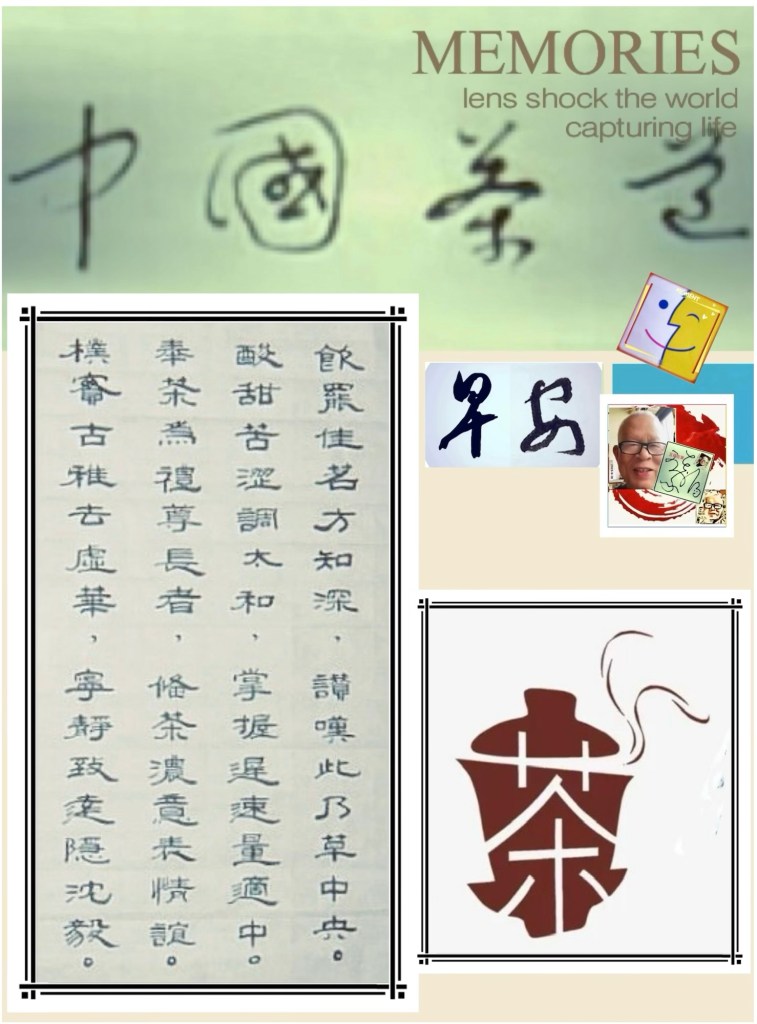 MEMORIES
lens shock the world
capturing life
中國茶道
飲罷佳名方知深，讚嘆此乃草中央。
酸甜苦澀調太和，掌握遲速量適中。
奉茶為禮尊長者，備茶濃意表情誼。
樸實古雅去虛華，寧靜致遠隱沈毅。
早安
茶